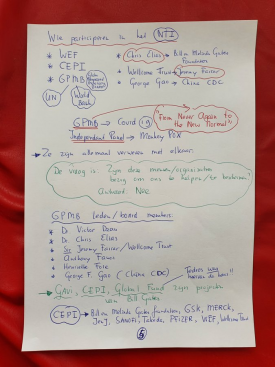 Wie participeren in het NTI
* WEF
* CEPI
* GPMB
UN
World Bank
* Chris Elias → Bill en Melinda Gates Foundation
* Wellcome Trust → Jeremy Farrar
* George Gao → China CDC
GPMB → Covid 19
Independent Panel → Monkey Pox
"From Never Again to the New Normal"
→ Ze zijn allemaal verweven met elkaar.
De vraag is Zijn deze mensen/organisaties
bezig om ons te helpen/te beschermen?
Antwoord: Nee.
GPMB leden/board members:
* Dr. Victor Dzau
* Dr. Chris Elias
* Sir Jeremy Farrar/Wellcome Trust
* Anthony Fauci
* Henrietta Fore
* George F. Gao (China CDC)
→ GAVI, CEPI, Global Fund zijn projecten
van Bill Gates
CEPI → Bill en Melinda Gates foundation, GSK, MERCK,
J&J, SANOFI, Takeda, PFIZER, WEF, Wellcome Trust